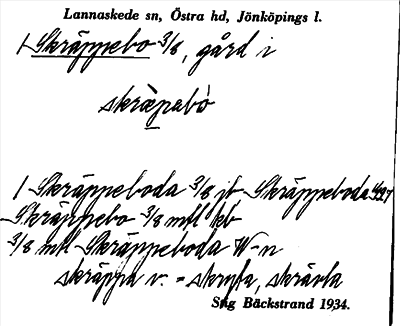 Lannaskede sn, Östra hd, Jönköpings l.
1 Skräppebo 3/8, gård i
skræpebò
1 Skräppeboda 3/8 jb Skräppeboda
Skräppebo 3/8 mtl kb
3/8 mtl Skräppeboda W-n
skräppa v. = skryta, skrävla
Stig Bäckstrand 1934.